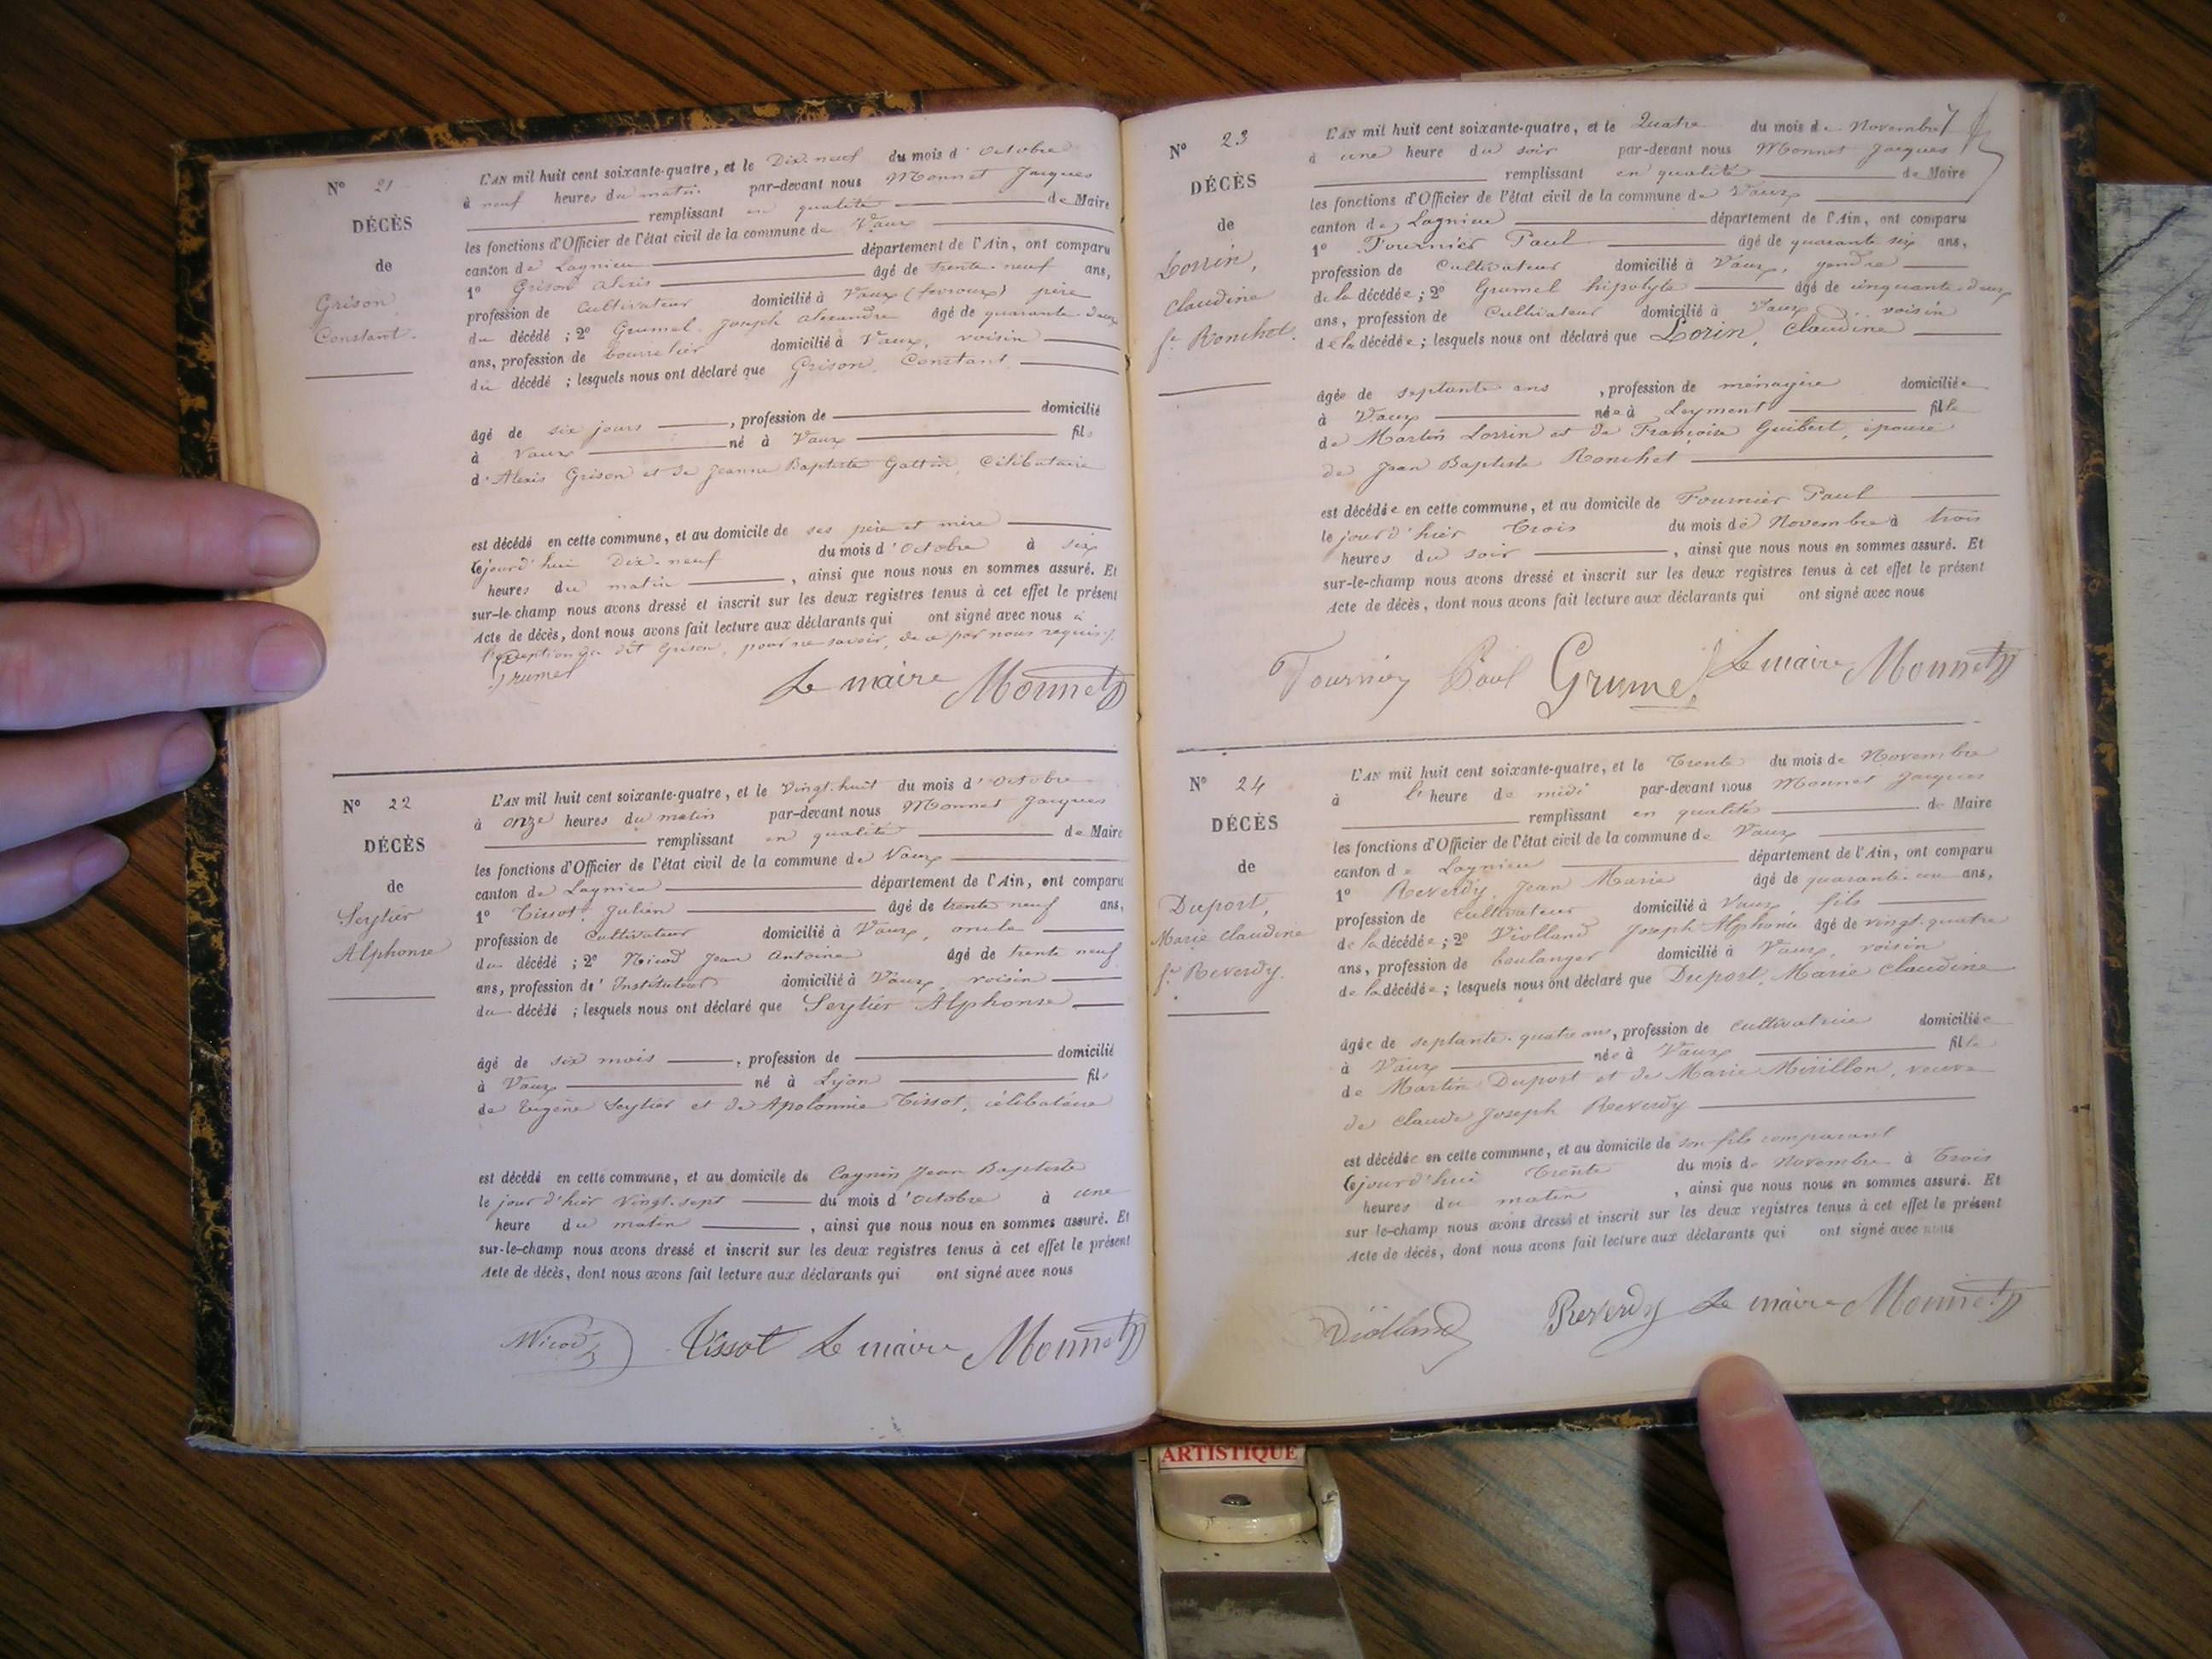 N° 21
DÉCÈS
de
Grison
Constant.
L'AN mil huit cent soixante-quatre, et le Dix-neuf du mois d'octobre
à neuf heures du matin par-devant nous Monnet Jacques
remplissant en qualité de Maire
les fonctions d'Officier de l'état civil de la commune de Vaux
canton de Lagnieu département de l'Ain, ont comparu
1° Grison alexis âgé de trente-neuf ans,
profession de Cultivateur domicilié à Vaux (fevroux) père
du décédé ; 2° Grumel Joseph alexandre âgé de quarante-deux
ans, profession de bourrelier domicilié à Vaux, voisin
du décédé ; lesquels nous ont déclaré que Grison, Constant
âgé de six jours , profession de domicilié
à Vaux né à Vaux fils
d'Alexis Grison et de Jeanne Baptiste Gattin, célibataire
est décédé en cette commune, et au domicile de ses père et mère
cejourd'hui Dix-neuf du mois d'octobre à six
heures du matin , ainsi que nous nous en sommes assuré. Et
sur-le-champ nous avons dressé et inscrit sur les deux registres tenus à cet effet le présent
Acte de décès, dont nous avons fait lecture aux déclarants qui ont signé avec nous à
l'exception du dit Grison, pour ne savoir, de ce par nous requis
Grumel
Le maire Monnet
N° 22
DÉCÈS
de
Seytier
Alphonse
L'AN mil huit cent soixante-quatre, et le Vingt-huit du mois d'octobre
à onze heures du matin par-devant nous Monnet Jacques
remplissant en qualité de Maire
les fonctions d'Officier de l'état civil de la commune de Vaux
canton de Lagnieu département de l'Ain, ont comparu
1° Tissot Julien âgé de trente neuf ans,
profession de Cultivateur domicilié à Vaux, oncle
du décédé ; 2° Nicod Jean Antoine âgé de trente neuf
ans, profession d'Instituteur domicilié à Vaux, voisin
du décédé ; lesquels nous ont déclaré que Seytier Alphonse
âgé de six mois , profession de domicilié
à Vaux né à Lyon fils
de Eugène Seytier et de Apolonnie Tissot, célibataire
est décédé en cette commune, et au domicile de Cagnin Jean Baptiste
le jour d'hier Vingt-sept du mois d'octobre à une
heure du matin , ainsi que nous nous en sommes assuré. Et
sur-le-champ nous avons dressé et inscrit sur les deux registres tenus à cet effet le présent
Acte de décès, dont nous avons fait lecture aux déclarants qui ont signé avec nous
Nicod Tissot Le maire Monnet
N° 23
DÉCÈS
de
Lorrin,
Claudine
fe Ronchet.
L'AN mil huit cent soixante-quatre, et le Quatre du mois de Novembre
à une heure du soir par-devant nous Monnet Jacques
remplissant en qualité de Maire
les fonctions d'Officier de l'état civil de la commune de Vaux
canton de Lagnieu département de l'Ain, ont comparu
1° Fournier Paul âgé de quarante six ans,
profession de Cultivateur domicilié à Vaux, gendre
de la décédée ; 2° Grumel hipolyte âgé de cinquante-deux
ans, profession de Cultivateur domicilié à Vaux, voisin
de la décédée ; lesquels nous ont déclaré que Lorin, Claudine
âgée de septante ans , profession de ménagère domiciliée
à Vaux née à Leyment fille
de Martin Lorrin et de Françoise Guibert, épouse
de Jean Baptiste Ronchet
est décédée en cette commune, et au domicile de Fournier Paul
le jour d'hier Trois du mois de Novembre à trois
heures du soir , ainsi que nous nous en sommes assuré. Et
sur-le-champ nous avons dressé et inscrit sur les deux registres tenus à cet effet le présent
Acte de décès, dont nous avons fait lecture aux déclarants qui ont signé avec nous
Fournier Paul Grumel Le maire Monnet
N° 24
DÉCÈS
de
Duport,
Marie Claudine
fe Reverdy.
L'AN mil huit cent soixante-quatre, et le Trente du mois de Novembre
à l'heure de midi par-devant nous Monnet Jacques
remplissant en qualité de Maire
les fonctions d'Officier de l'état civil de la commune de Vaux
canton de Lagnieu département de l'Ain, ont comparu
1° Reverdy, Jean Marie âgé de quarante-un ans,
profession de Cultivateur domicilié à Vaux, fils
de la décédée ; 2° Violland Joseph Alphonse âgé de vingt-quatre
ans, profession de boulanger domicilié à Vaux, voisin
de la décédée ; lesquels nous ont déclaré que Duport, Marie Claudine
âgée de septante-quatre ans, profession de cultivatrice domiciliée
à Vaux née à Vaux fille
de Martin Duport et de Marie Mirillon, veuve
de Claude Joseph Reverdy
est décédée en cette commune, et au domicile de son fils comparant
cejourd'hui Trente du mois de Novembre à Trois
heures du matin , ainsi que nous nous en sommes assuré. Et
sur le-champ nous avons dressé et inscrit sur les deux registres tenus à cet effet le présent
Acte de décès, dont nous avons fait lecture aux déclarants qui ont signé avec nous
Violland Reverdy Le maire Monnet
ARTISTIQUE